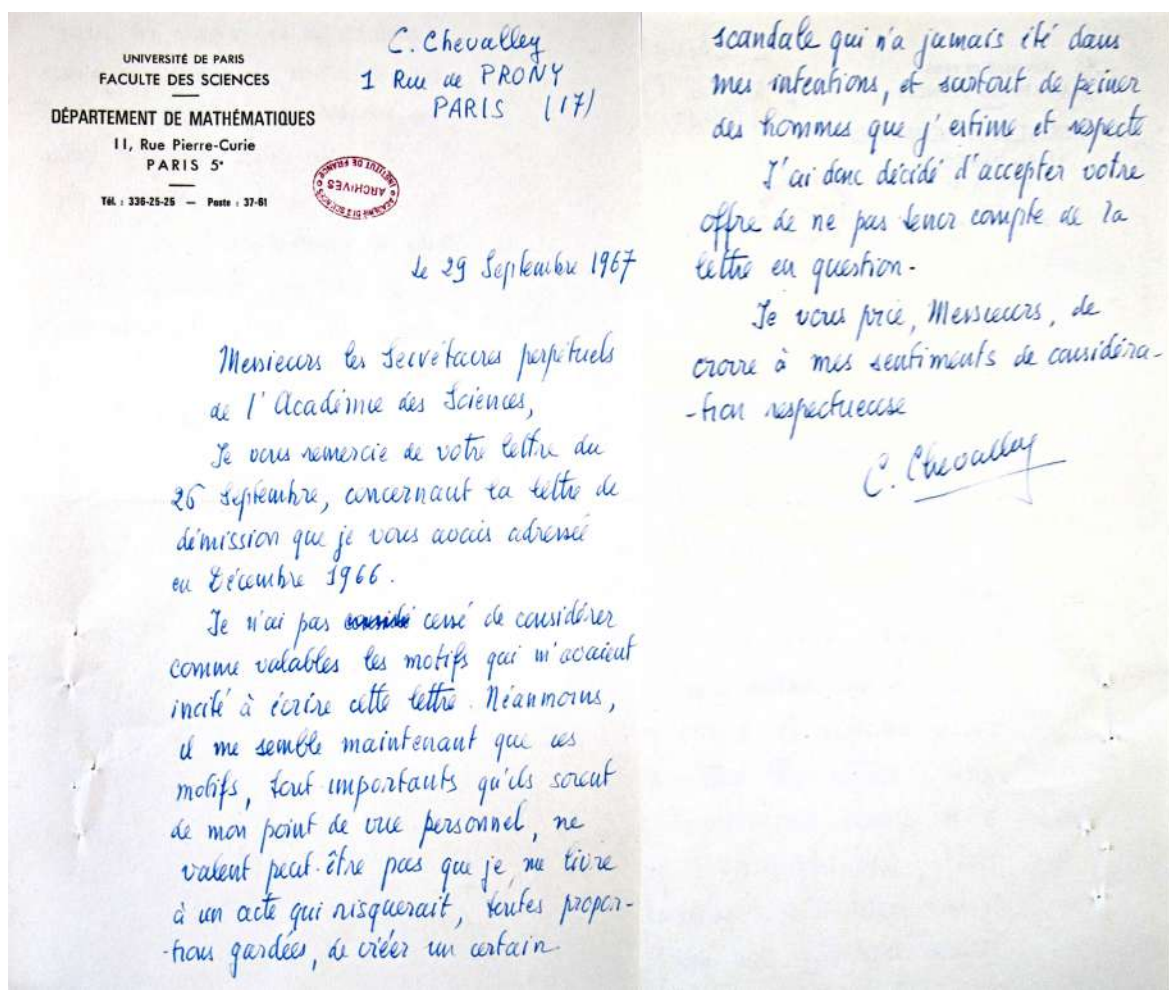 UNIVERSITÉ DE PARIS
FACULTE DES SCIENCES
DÉPARTEMENT DE MATHÉMATIQUES
11, Rue Pierre-Curie
PARIS 5e
Tél. : 336-25-25 — Poste : 37-61
C. Chevalley
1 Rue de PRONY
PARIS (17)
ACADÉMIE DES SCIENCES
ARCHIVES
INSTITUT DE FRANCE
le 29 Septembre 1967
Messieurs les Secrétaires perpétuels
de l'Académie des Sciences,
Je vous remercie de votre lettre du
26 Septembre, concernant la lettre de
démission que je vous avais adressée
en Décembre 1966.
Je n'ai pas cessé de considérer
comme valables les motifs qui m'avaient
incité à écrire cette lettre. Néanmoins,
il me semble maintenant que ces
motifs, tout importants qu'ils soient
de mon point de vue personnel, ne
valent peut-être pas que je me livre
à un acte qui risquerait, toutes propor-
-tions gardées, de créer un certain
scandale qui n'a jamais été dans
mes intentions, et surtout de peiner
des hommes que j'estime et respecte
J'ai donc décidé d'accepter votre
offre de ne pas tenir compte de la
lettre en question.
Je vous prie, Messieurs, de
croire à mes sentiments de considéra-
-tion respectueuse
C. Chevalley